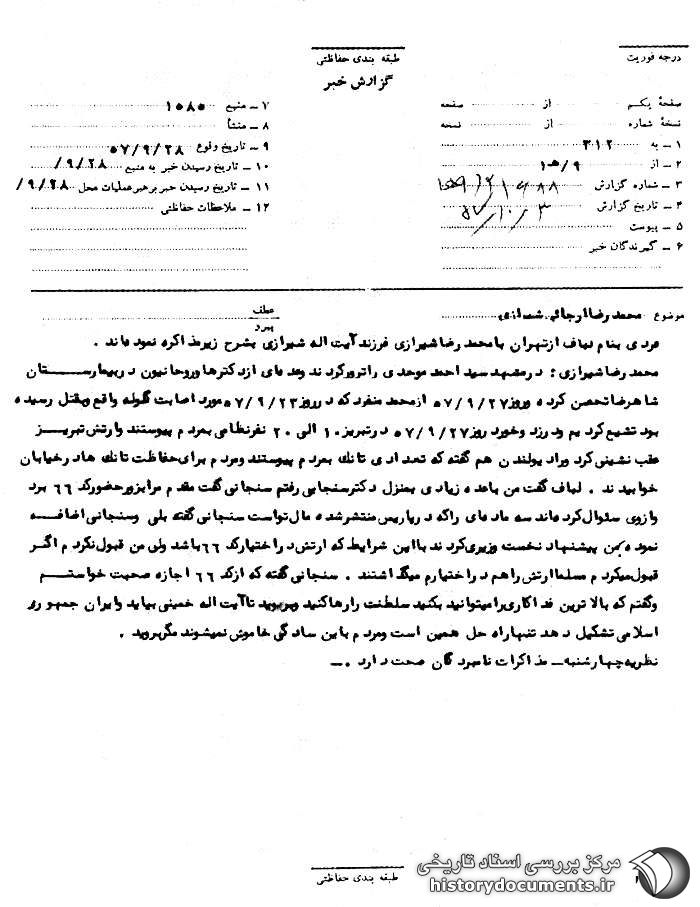 درجه فوریت
طبقه بندی حفاظتی
گزارش خبر
صفحهٔ یکم از صفحه
نسخهٔ شماره از نسخه
۱ ــ به ۳۱۲
۲ ــ از ۹/ه۱
۳ ــ شماره گزارش
۴ ــ تاریخ گزارش ۵۷/۱۰/۳
۵ ــ پیوست
۶ ــ گیرندگان خبر
۷ ــ منبع ۱۵۸۵
۸ ــ منشأ
۹ ــ تاریخ وقوع ۵۷/۹/۲۸
۱۰ ــ تاریخ رسیدن خبر به منبع ۹/۲۸/
۱۱ ــ تاریخ رسیدن خبر برهبر عملیات محل ۹/۲۸/
۱۲ ــ ملاحظات حفاظتی
موضوع محمد رضا ارجائی شیرازی
عطف
پیرو
فردی بنام لباف از تهران با محمد رضا شیرازی فرزند آیت اله شیرازی بشرح زیر مذاکره نموده اند .
محمد رضا شیرازی : در مشهد سید احمد موحدی را ترور کردند و عده ای از دکترها و روحانیون در بیمارستان
شاهرضا تحصن کرده و روز ۵۷/۹/۲۷ از محمد منفرد که در روز ۵۷/۹/۲۳ مورد اصابت گلوله واقع و بقتل رسیده
بود تشییع کردیم و در زد و خورد روز ۵۷/۹/۲۷ در تبریز ۱۰ الی ۲۰ نفر نظامی بمردم پیوستند و ارتش تبریز
عقب نشینی کرد و رادیو لندن هم گفته که تعدادی تانک بمردم پیوستند و مردم برای حفاظت تانک ها در خیابان
خوابیدند . لباف گفت من با عده زیادی بمنزل دکتر سنجابی رفتم سنجابی گفت مقدم مرا بزور حضور کد ۶۶ برد
و از وی سئوال کرده اند سه ماده ای را که در پاریس منتشر شده مال تواست سنجابی گفته بلی و سنجابی اضافه
نموده بمن پیشنهاد نخست وزیری کردند با این شرایط که ارتش در اختیار کد ۶۶ باشد ولی من قبول نکردم اگر
قبول میکردم مسلما ارتش را هم در اختیارم میگذاشتند . سنجابی گفته که از کد ۶۶ اجازه صحبت خواستم
و گفتم که بالاترین فداکاری را میتوانید بکنید سلطنت را رها کنید و بروید تا آیت اله خمینی بیاید و ایران جمهوری
اسلامی تشکیل دهد تنها راه حل همین است و مردم با این سادگی خاموش نمیشوند مگر بروید .
نظریه چهارشنبه ــ مذاکرات نامبردگان صحت دارد . ــ
طبقه بندی حفاظتی
مرکز بررسی اسناد تاریخی
historydocuments.ir